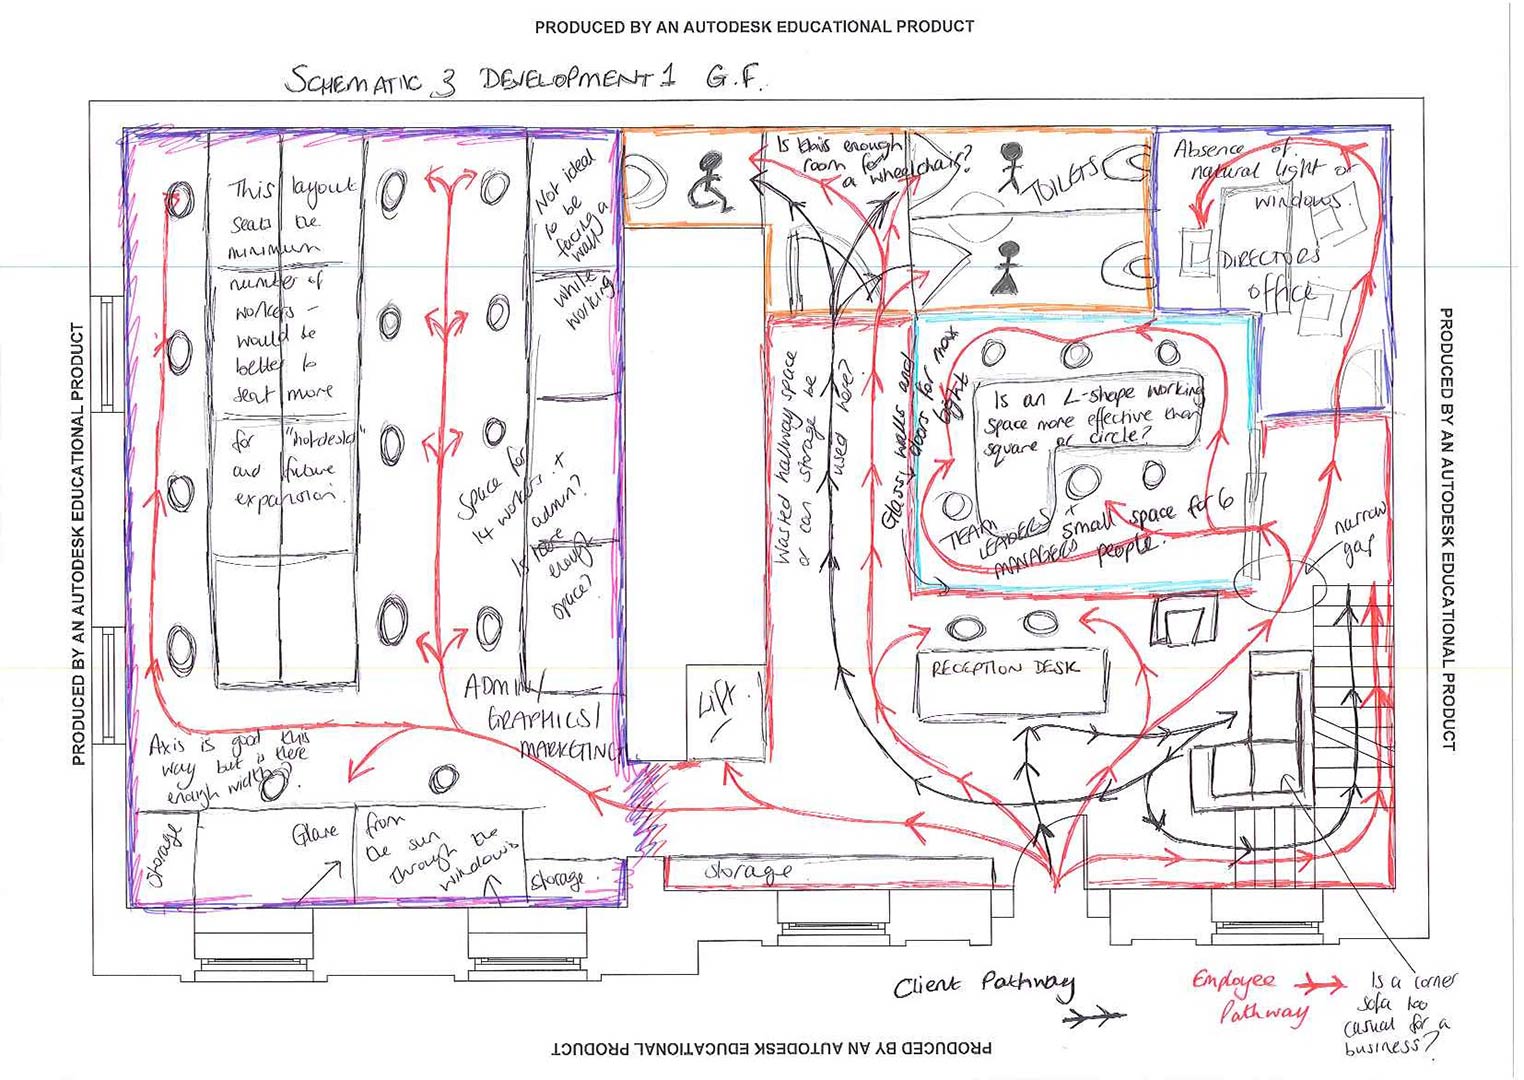 PRODUCED BY AN AUTODESK EDUCATIONAL PRODUCT
SCHEMATIC 3 DEVELOPMENT 1 G.F.
PRODUCED BY AN AUTODESK EDUCATIONAL PRODUCT
This layout
seats the
minimum
number of
workers -
would be
better to
seat more
for "hotdesks"
and future
expansion.
Not ideal
to be
facing a
wall
while
working
Space for
14 workers +
admin?
Is there
enough
space?
ADMIN/
GRAPHICS/
MARKETING
Axis is good this
way but is there
enough width?
Storage
Glare
from
the sun
through the
windows
Storage.
Is this enough
room for
a wheelchair?
TOILETS
Absence of
natural light or
windows.
DIRECTORS
office
Wasted hallway space
or can storage be
used here?
Glass walls and
doors for max
light
Is an L-shape working
space more effective than
square or circle?
TEAM
LEADERS +
MANAGERS
small space for 6
people.
narrow
gap
RECEPTION DESK
Lift
Storage.
Client Pathway
Employee
Pathway
Is a corner
sofa too
casual for a
business?
PRODUCED BY AN AUTODESK EDUCATIONAL PRODUCT
PRODUCED BY AN AUTODESK EDUCATIONAL PRODUCT